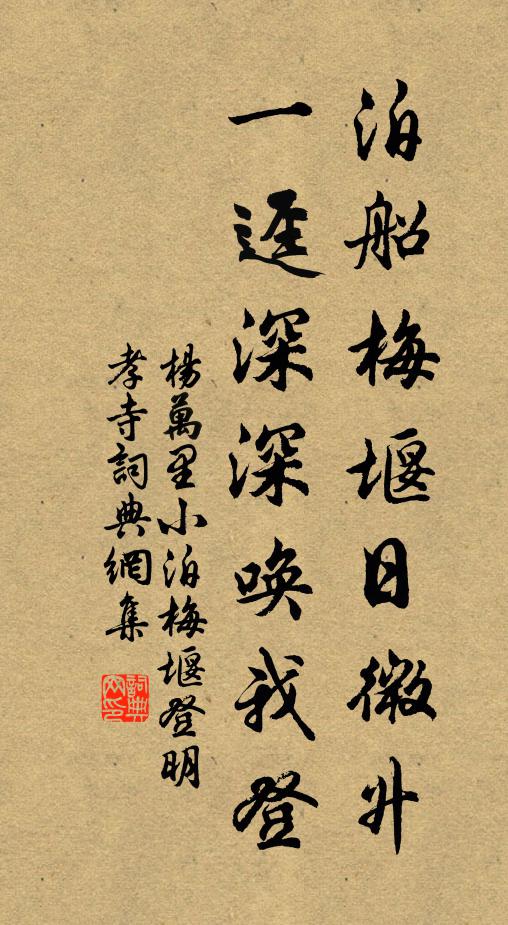 泊船梅堰日微升
一迳深深唤我登
楊萬里小泊梅堰登明
孝寺詞典網集